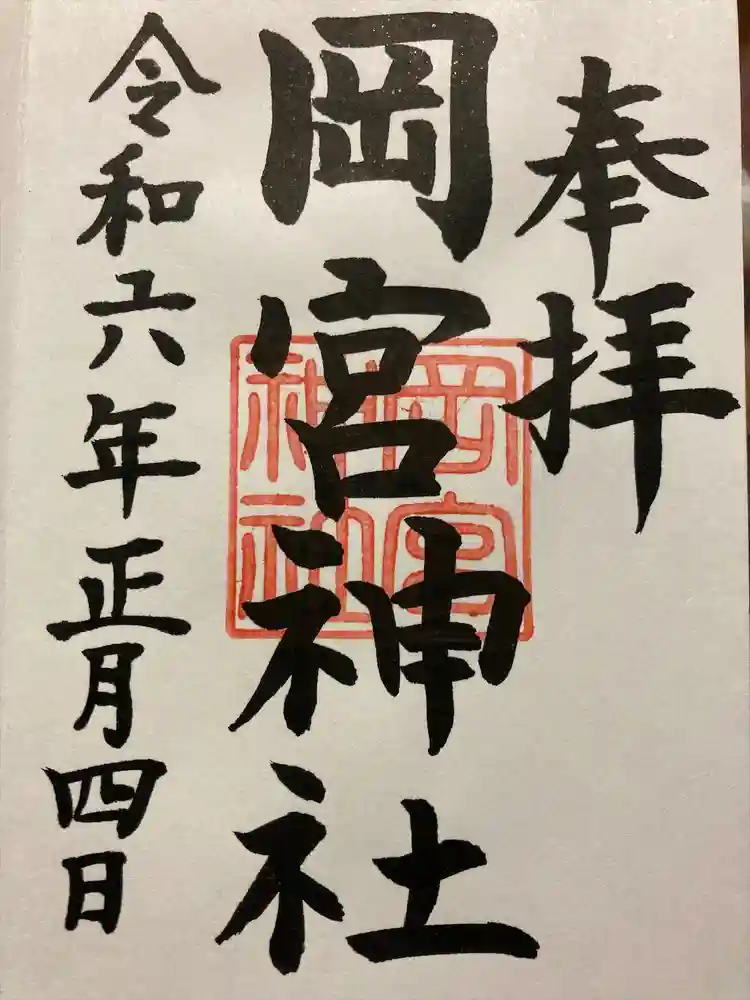 奉拝
岡宮神社
岡宮神社
令和六年正月四日